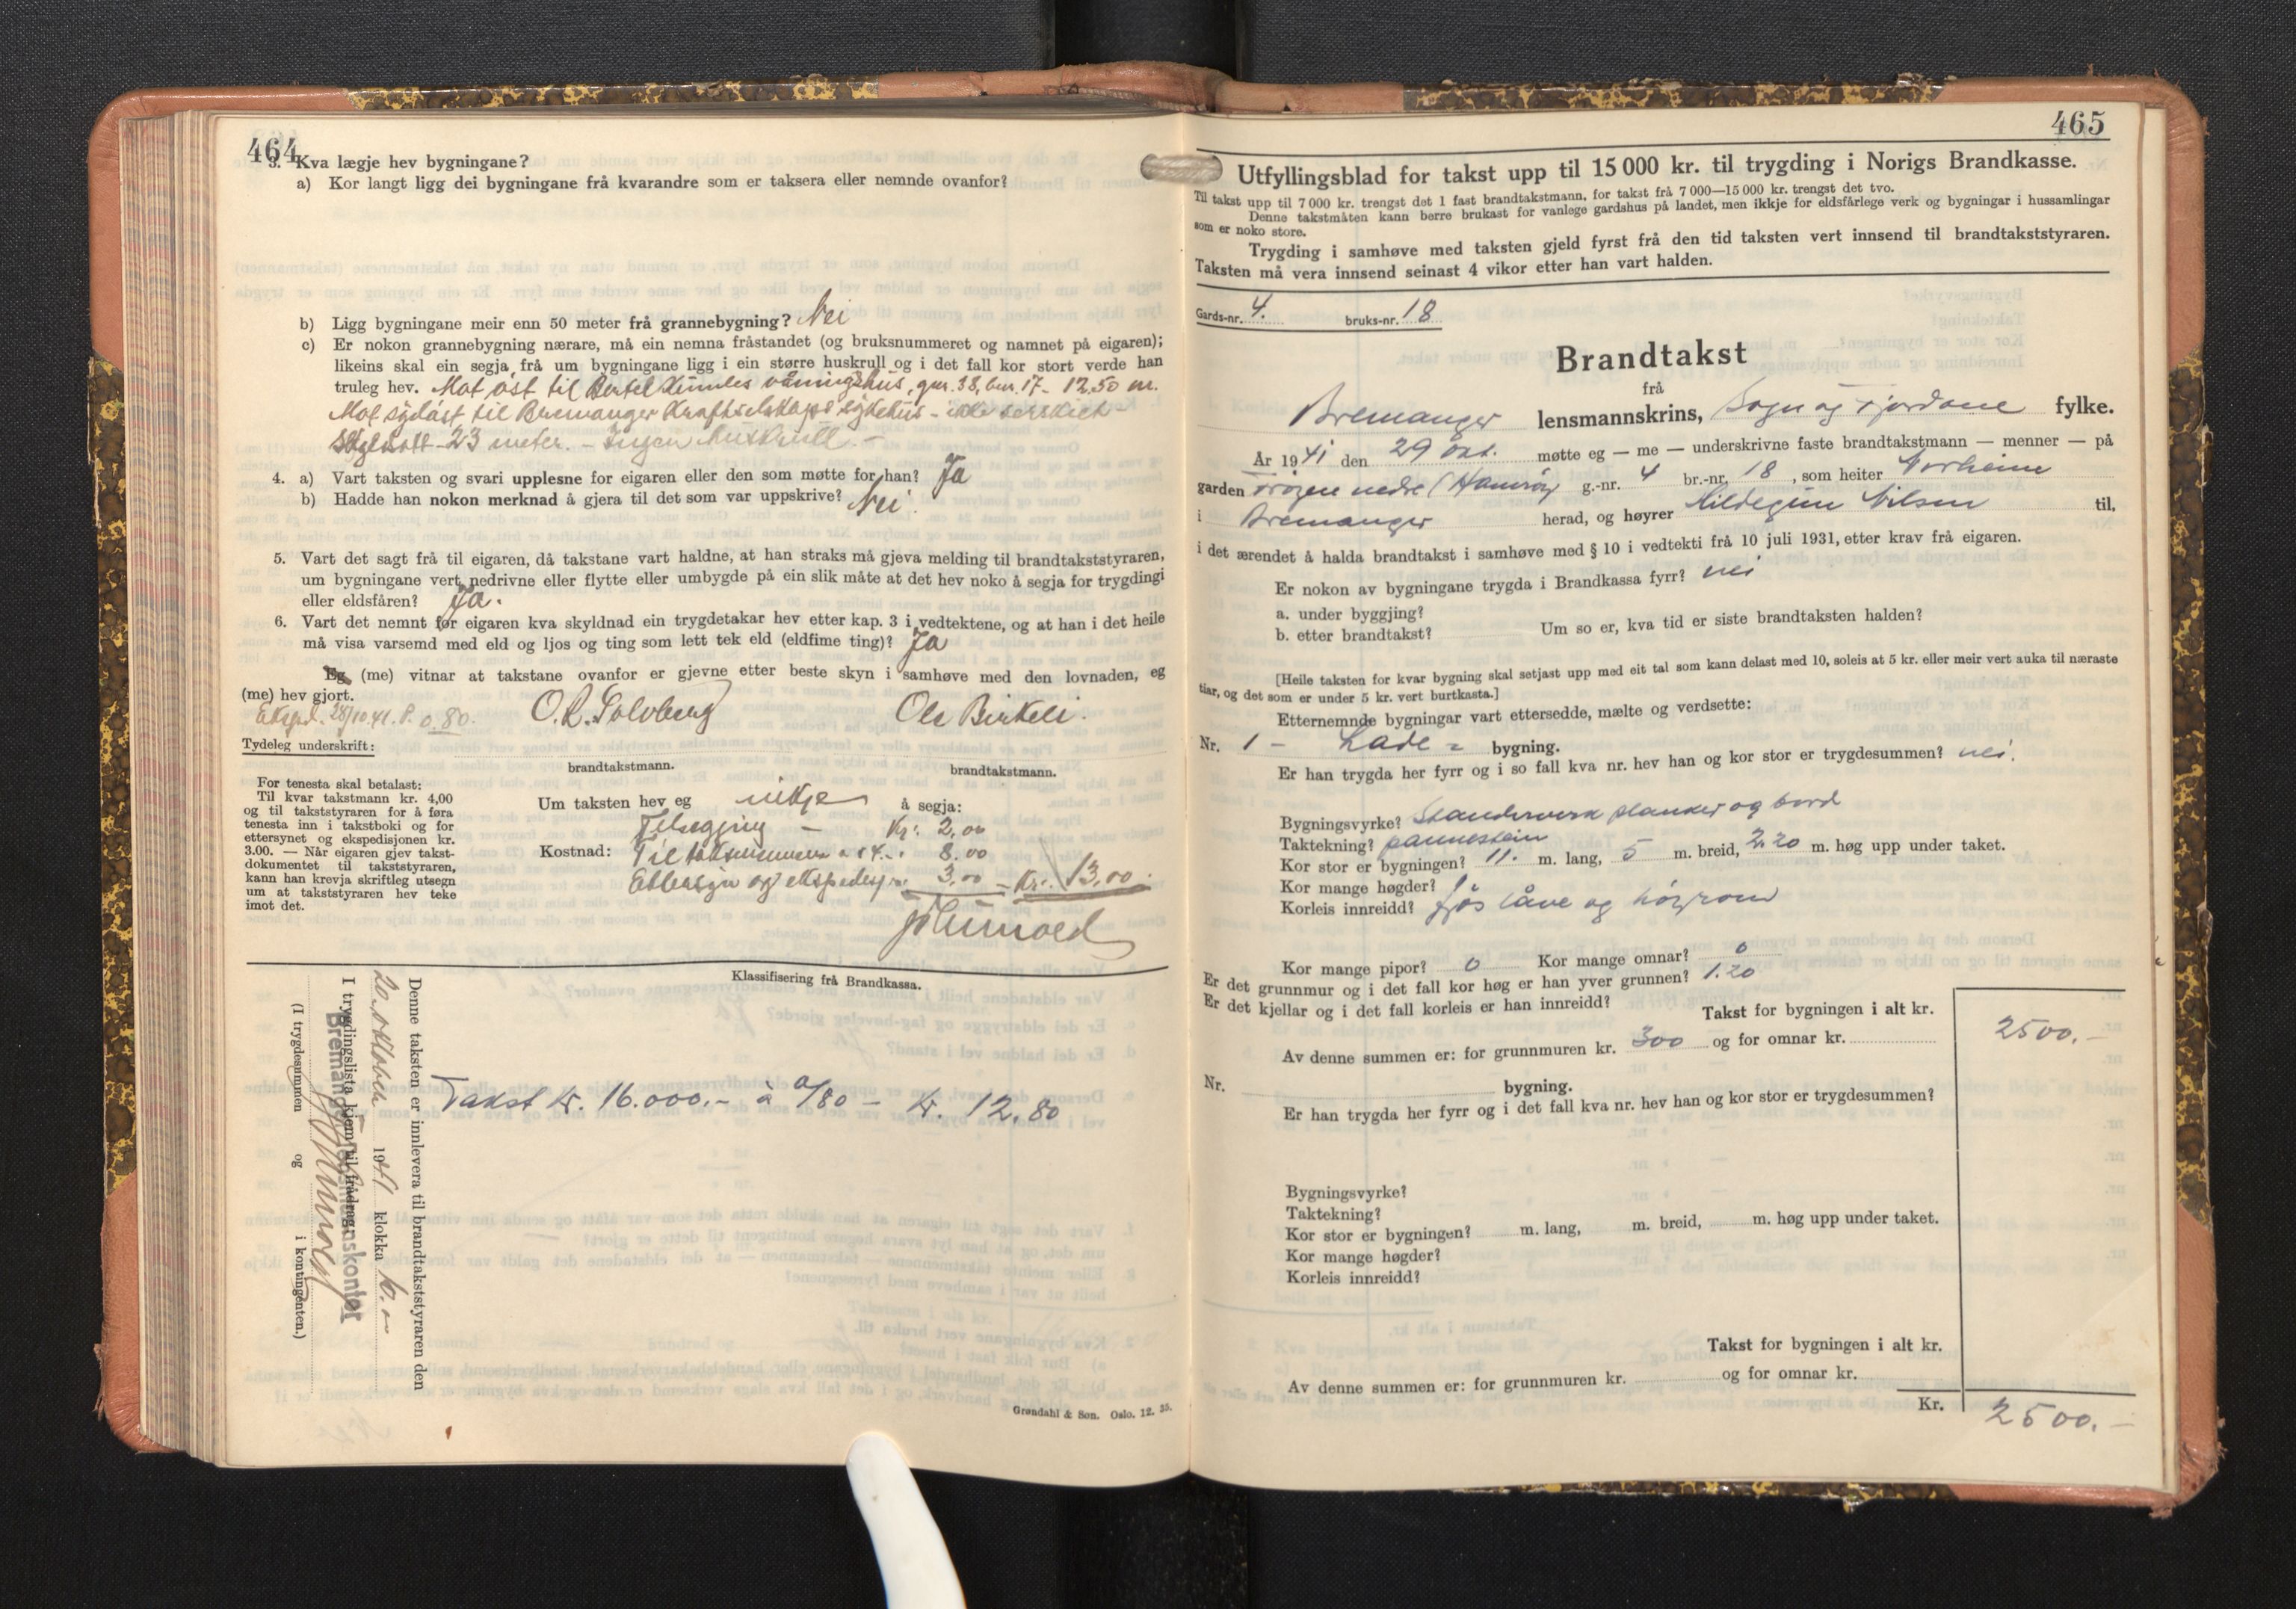 464
3. Kva lægje hev bygningane?
a) Kor langt ligg dei bygningane frå kvarandre som er taksera eller nemnde ovanfor?
b) Ligg bygningane meir enn 50 meter frå grannebygning? Nei
c) Er nokon grannebygning nærare, må ein nemna fråstandet (og bruksnummeret og namnet på eigaren);
likeins skal ein segja frå um bygningane ligg i ein større huskrull og i det fall kor stort verde han
truleg hev. Mot øst til Bertel våningshus, gnr. 38, bnr. 17 - 12.50 m.
Mot sydøst til Bremanger Kraftselskaps sykehus - ikke særskilt
23 meter. - Ingen huskrull. -
4. a) Vart taksten og svari upplesne for eigaren eller den som møtte for han? Ja
b) Hadde han nokon merknad å gjera til det som var uppskrive? Nei.
5. Vart det sagt frå til eigaren, då takstane vart haldne, at han straks må gjeva melding til brandtakststyraren,
um bygningane vert nedrivne eller flytte eller umbygde på ein slik måte at det hev noko å segja for trygdingi
eller eldsfåren? Ja.
6. Vart det nemnt for eigaren kva skyldnad ein trygdetakar hev etter kap. 3 i vedtektene, og at han i det heile
må visa varsemd med eld og ljos og ting som lett tek eld (eldfime ting)? Ja
Eg (me) vitnar at takstane ovanfor er gjevne etter beste skyn i samhøve med den lovnaden, eg
(me) hev gjort.
Eksped. 28/10.41. P. 0.80. O. R. Solvberg Ole Birkeli.
Tydeleg underskrift:
brandtakstmann. brandtakstmann.
For tenesta skal betalast:
Til kvar takstmann kr. 4,00
og til takststyraren for å føra
tenesta inn i takstboki og for
ettersynet og ekspedisjonen kr.
3.00. — Når eigaren gjev takst-
dokumentet til takststyraren,
kann han krevja skriftleg utsegn
um at takststyraren hev teke
imot det.
Um taksten hev eg inkje å segja:
Tilsegjing - Kr. 2,00
Kostnad: Til takstmennene a 4.- 8.00
Ettersyn og ekspedisjon 3,00 = Kr. 13,00
Klassifisering frå Brandkassa.
Takst kr. 16.000.- à 0/80 - kr. 12,80
Denne taksten er innlevera til brandtakststyraren den
20. oktober 1941 klokka
I trygdingslista kjem til frådrag
Bremanger lensmannskontor
(I trygdesummen og i kontingenten.)
Grøndahl & Søn. Oslo. 12. 35.
465
Utfyllingsblad for takst upp til 15 000 kr. til trygding i Norigs Brandkasse.
Til takst upp til 7 000 kr. trengst det 1 fast brandtakstmann, for takst frå 7 000—15 000 kr. trengst det tvo.
Denne takstmåten kann berre brukast for vanlege gardshus på landet, men ikkje for eldsfårlege verk og bygningar i hussamlingar
som er noko store.
Trygding i samhøve med taksten gjeld fyrst frå den tid taksten vert innsend til brandtakststyraren.
Taksten må vera innsend seinast 4 vikor etter han vart halden.
Gards-nr. 4. bruks-nr. 18
Brandtakst
frå
Bremanger lensmannskrins, Sogn og Fjordane fylke.
År 1941 den 29 okt. møtte eg — me — underskrivne faste brandtakstmann — menner — på
garden nedre g.-nr. 4 br.-nr. 18, som heiter Norheim
i Bremanger herad, og høyrer Hildegunn Nilsen til,
i det ærendet å halda brandtakst i samhøve med § 10 i vedtekti frå 10 juli 1931, etter krav frå eigaren.
Er nokon av bygningane trygda i Brandkassa fyrr? nei
a. under byggjing?
b. etter brandtakst? Um so er, kva tid er siste brandtaksten halden?
[Heile taksten for kvar bygning skal setjast upp med eit tal som kann delast med 10, soleis at 5 kr. eller meir vert auka til næraste
tiar, og det som er under 5 kr. vert burtkasta.]
Etternemnde bygningar vart ettersedde, mælte og verdsette:
Nr. 1 - Lade- bygning.
Er han trygda her fyrr og i so fall kva nr. hev han og kor stor er trygdesummen? nei.
Bygningsvyrke? Standerverk planker og bord
Taktekning? pannestein
Kor stor er bygningen? 11. m. lang, 5 m. breid, 2.20 m. høg upp under taket.
Kor mange høgder? 1
Korleis innreidd? fjøs låve og høyrom
Kor mange pipor? 0 Kor mange omnar? 0
Er det grunnmur og i det fall kor høg er han yver grunnen? 1.20
Er det kjellar og i det fall korleis er han innreidd?
Takst for bygningen i alt kr. 2500.-
Av denne summen er: for grunnmuren kr. 300 og for omnar kr.
Nr. bygning.
Er han trygda her fyrr og i det fall kva nr. hev han og kor stor er trygdesummen?
Bygningsvyrke?
Taktekning?
Kor stor er bygningen? m. lang, m. breid, m. høg upp under taket.
Kor mange høgder?
Korleis innreidd?
Takst for bygningen i alt kr.
Av denne summen er: for grunnmuren kr. og for omnar kr.
Kr. 2500.-